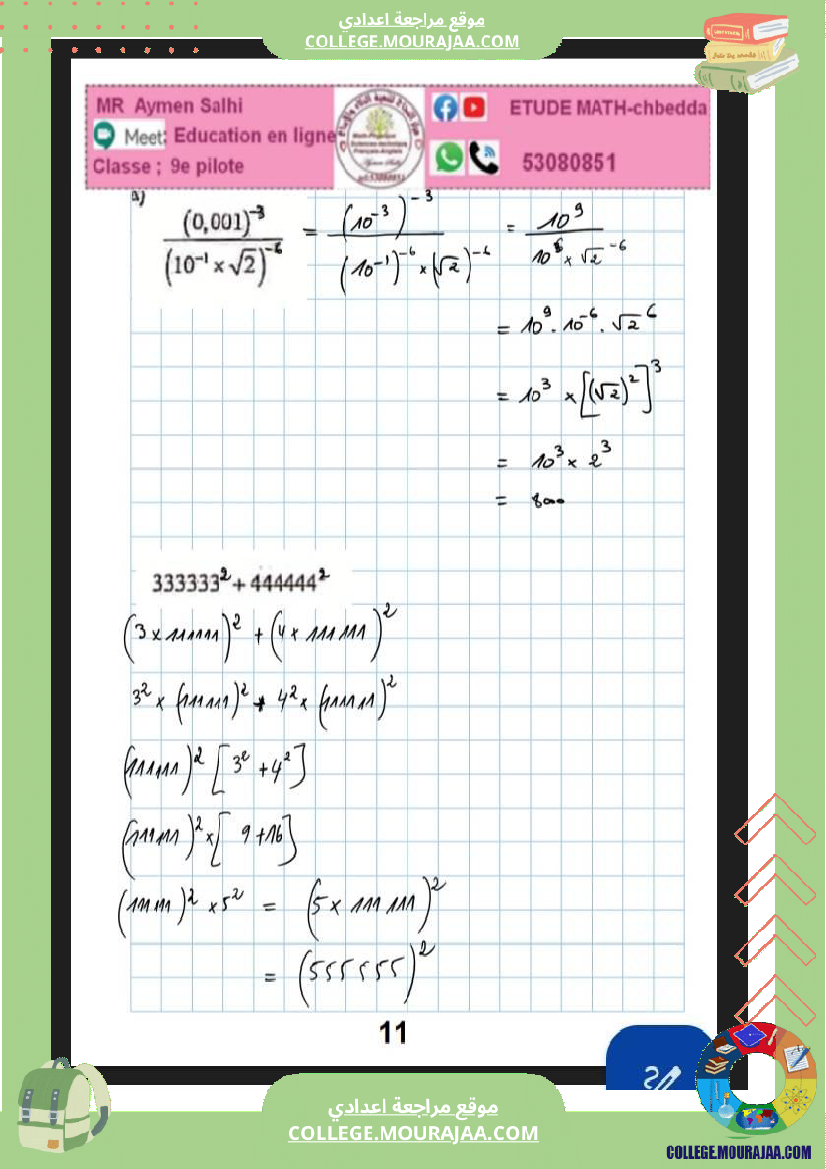 موقع مراجعة اعدادي
COLLEGE.MOURAJAA.COM
MR Aymen Salhi
Meet: Education en ligne
Classe ; 9e pilote
ETUDE MATH-chbedda
53080851
a)
(0,001)⁻³ / (10⁻¹ × √2)⁻⁶ = (10⁻³)⁻³ / (10⁻¹)⁻⁶ × (√2)⁻⁶ = 10⁹ / 10⁶ × √2⁻⁶
= 10⁹ · 10⁻⁶ · √2⁶
= 10³ × [(√2)²]³
= 10³ × 2³
= 8000
333333² + 444444²
(3 × 111111)² + (4 × 111111)²
3² × (111111)² + 4² × (111111)²
(111111)² [3² + 4²]
(111111)² × [9 + 16]
(111111)² × 5² = (5 × 111111)²
= (555555)²
11
موقع مراجعة اعدادي
COLLEGE.MOURAJAA.COM
COLLEGE.MOURAJAA.COM